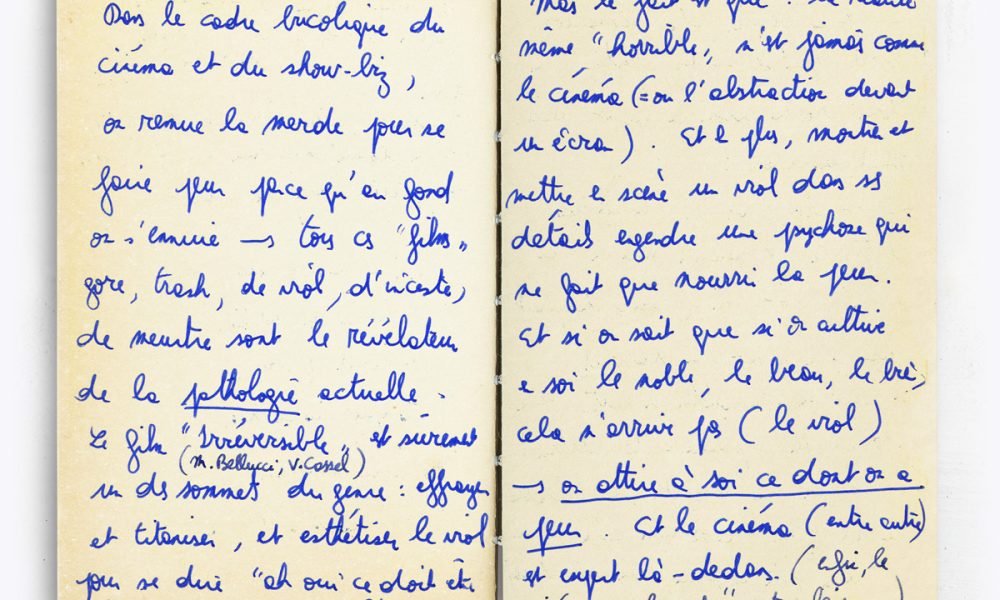 Dans le cadre bucolique du
cinéma et du show-biz,
on remue la merde pour se
faire peur parce qu'au fond
on s'ennuie → tous ces "films"
gore, trash, de viol, d'inceste,
de meurtre sont le révélateur
de la pathologie actuelle.
Le film "Irréversible" est sûrement
(M. Bellucci, V. Cassel)
un des sommets du genre : effrayer
et titaniser, et esthétiser le viol
pour se dire "ah oui ce doit être
Mais le fait est que : la réalité
même "horrible", n'est jamais comme
le cinéma (= ou l'abstraction devant
un écran). Et le plus, montrer et
mettre en scène un viol dans ses
détails engendre une psychose qui
ne fait que nourrir la peur.
Et si on sait que si on cultive
en soi le noble, le beau, le
cela n'arrive pas (le viol)
→ on attire à soi ce dont on a
peur. Et le cinéma (entre autre)
est expert là-dedans. (enfin, le